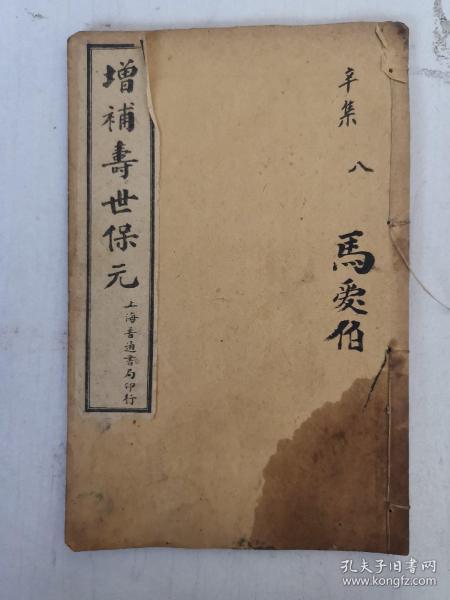 辛集 八
馬愛伯
增補壽世保元
上海普通書局印行
孔夫子旧书网
www.kongfz.com